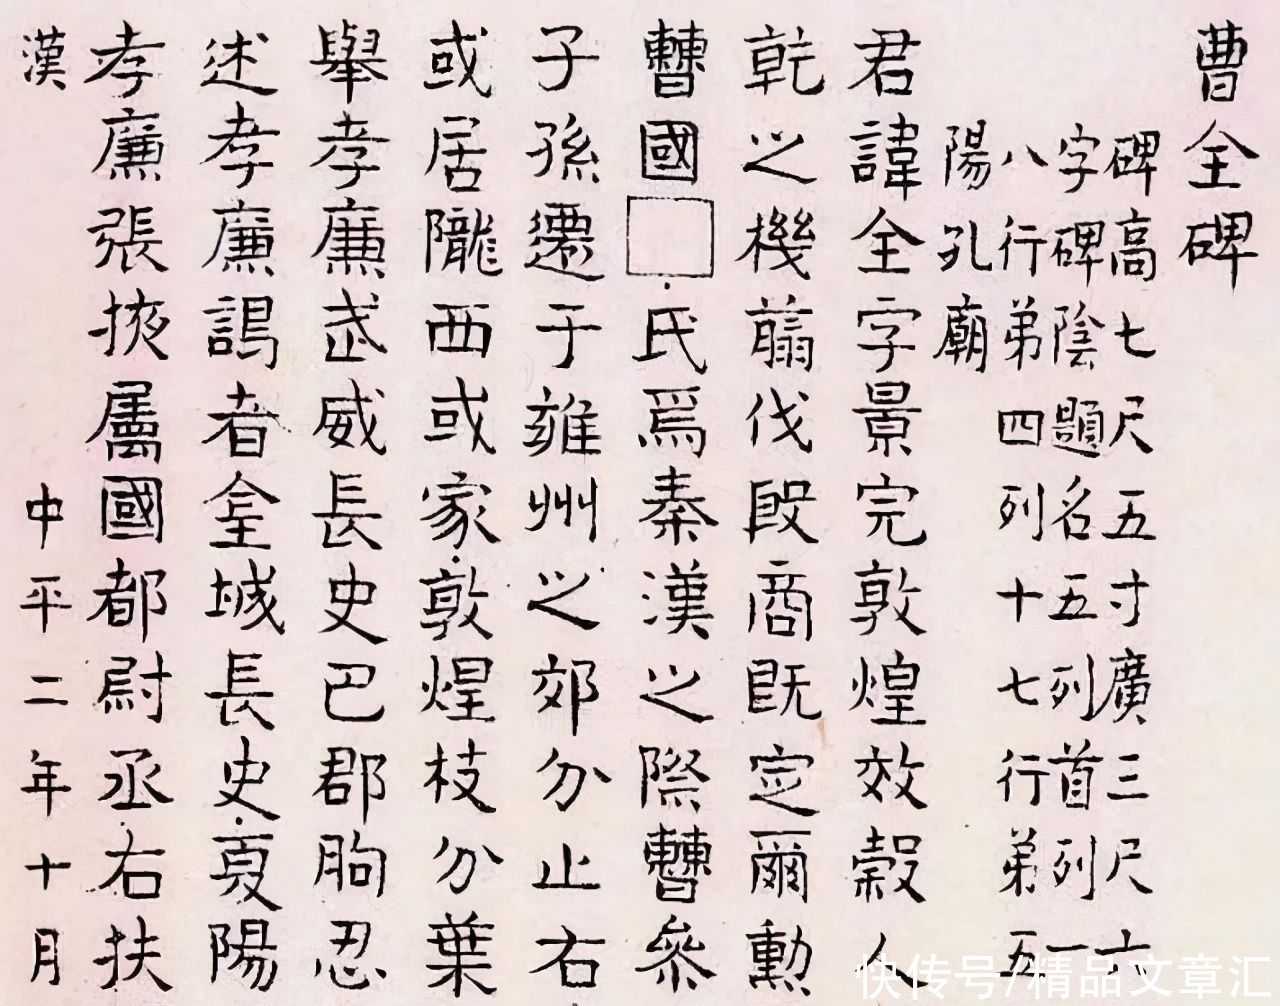 曹全碑
碑高七尺五寸廣三尺六
字碑陰題名五列首列一
八行弟四列十七行弟五
陽孔廟
君諱全字景完敦煌效穀人
乾之機翦伐殷商既定爾勳
曹國□氏焉秦漢之際曹參
子孫遷于雍州之郊分止右
或居隴西或家敦煌枝分葉
舉孝廉武威長史巴郡朐忍
述孝廉謁者金城長史夏陽
孝廉張掖屬國都尉丞右扶
漢 中平二年十月
快传号/精品文章汇